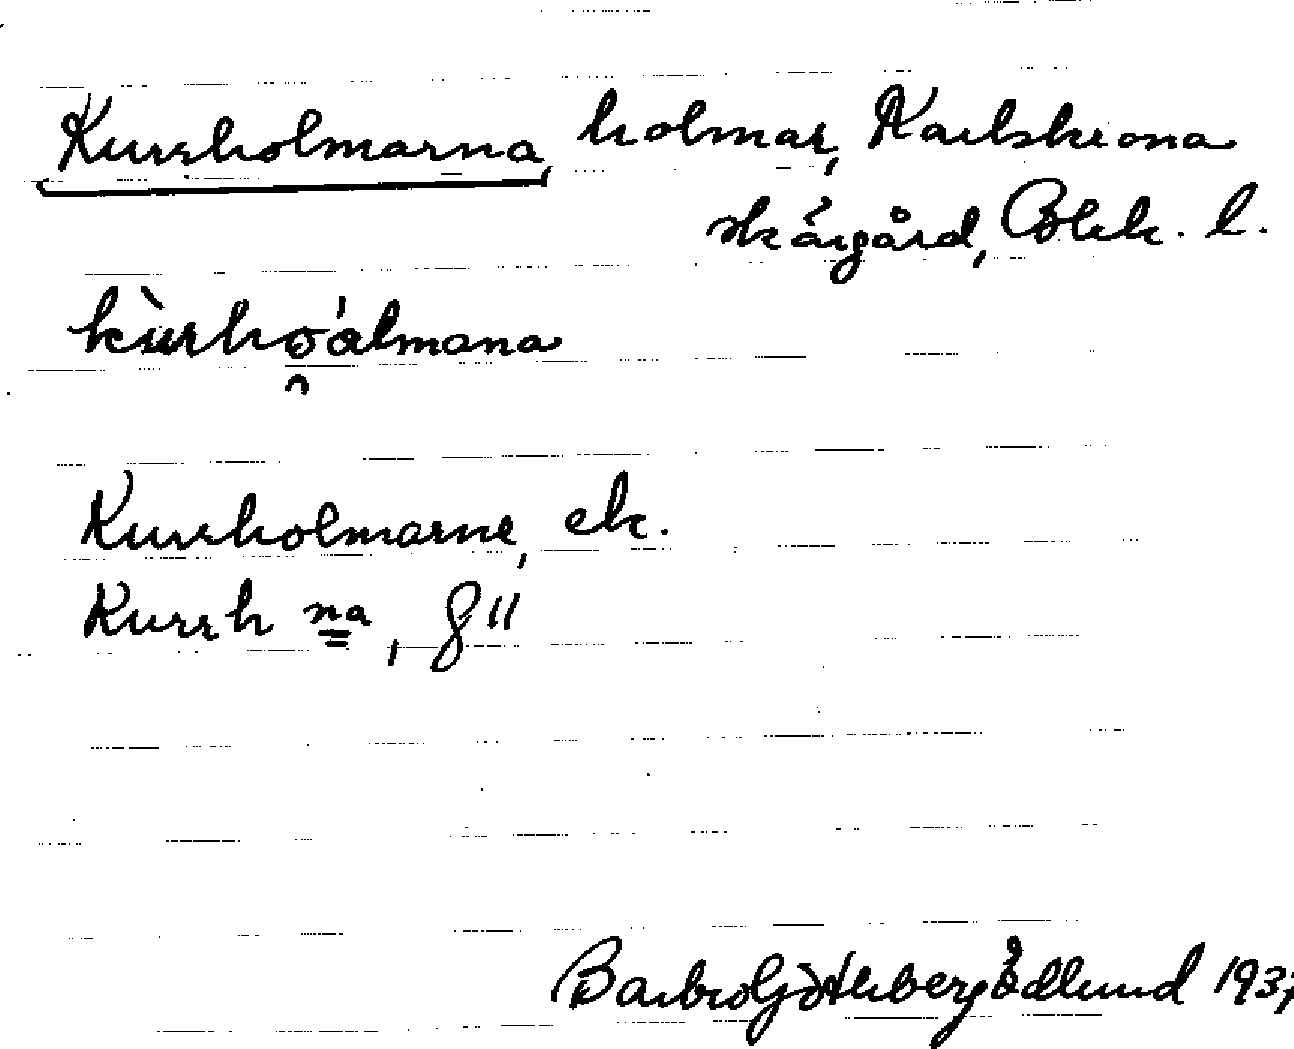 Kurrholmarna, holmar, Karlskrona
skärgård, Blek. l.
kùrhoálmana
Kurrholmarne, ek.
Kurrh na, g"
Barbro Göthberg Edlund 1937